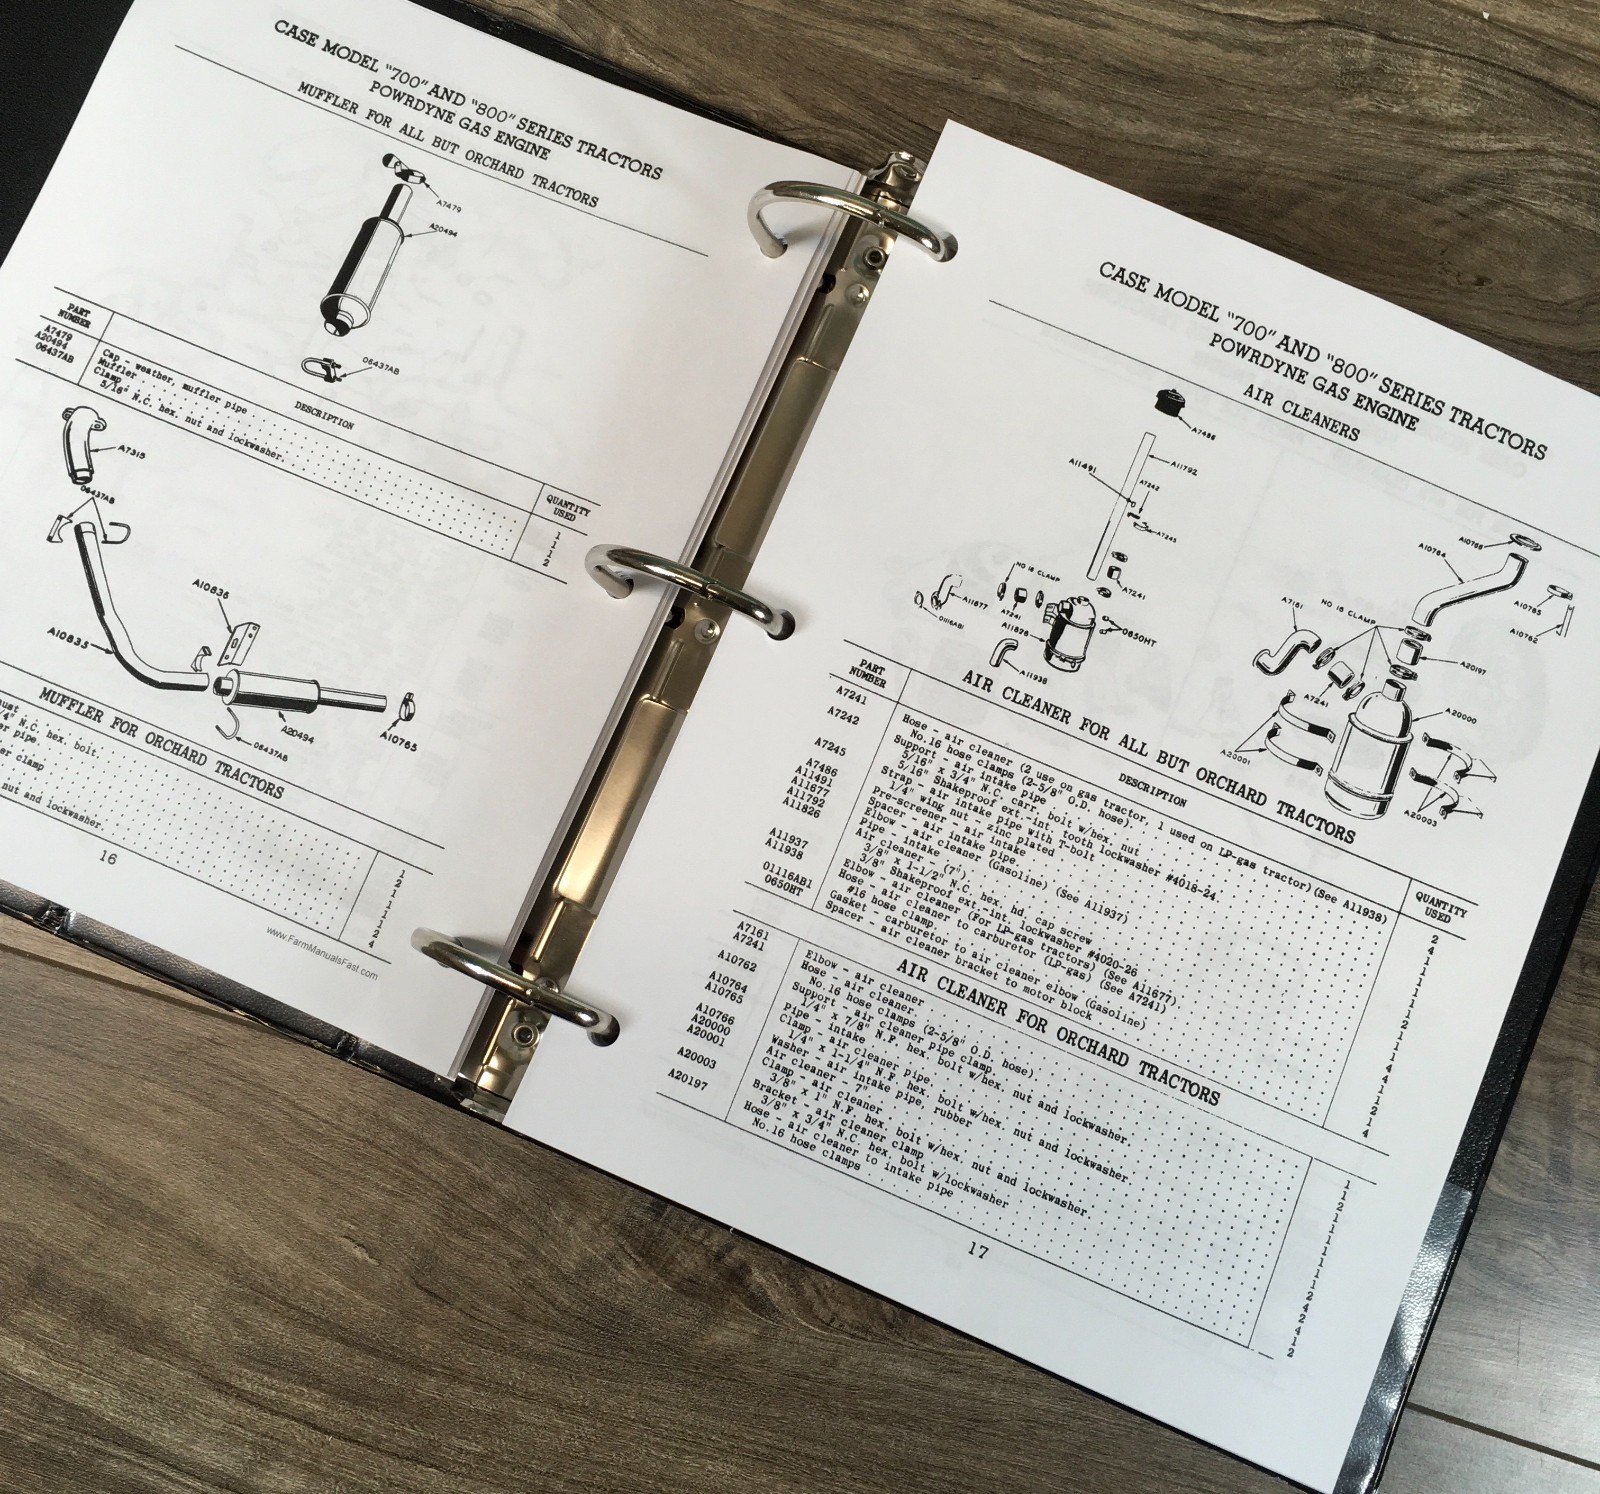 CASE MODEL "700" AND "800" SERIES TRACTORS
POWRDYNE GAS ENGINE
MUFFLER FOR ALL BUT ORCHARD TRACTORS
A7479
A20494
06437AB
PART NUMBER
DESCRIPTION
QUANTITY USED
A7479 Cap - weather, muffler pipe 1
A20494 Muffler 1
06437AB Clamp 1
5/16" N.C. hex. nut and lockwasher. 2
A7315
06437AB
A10836
A10835
A20494
06437AB
A10765
MUFFLER FOR ORCHARD TRACTORS
N.C. hex. bolt.
pipe.
clamp
nut and lockwasher.
16
www.FarmManualsFast.com
CASE MODEL "700" AND "800" SERIES TRACTORS
POWRDYNE GAS ENGINE
AIR CLEANERS
A7486
A11792
A11491
A7242
A7245
NO 16 CLAMP
A7241
A7241
A11677
01116AB1
A11826
0650HT
A11938
A10766
A10764
A10765
A10762
A7161
NO 16 CLAMP
A20197
A7241
A20000
A20001
A20003
AIR CLEANER FOR ALL BUT ORCHARD TRACTORS
PART NUMBER
DESCRIPTION
QUANTITY USED
A7241 Hose - air cleaner (2 use on gas tractor, 1 used on LP-gas tractor)(See A11938) 2
No.16 hose clamps (2-5/8" O.D. hose). 4
A7242 Support - air intake pipe
5/16" x 3/4" N.C. carr. bolt w/hex. nut
5/16" Shakeproof ext.-int. tooth lockwasher #4018-24
A7245 Strap - air intake pipe with T-bolt
1/4" wing nut - zinc plated
A7486 Pre-screener - air intake
A11491 Spacer - air intake pipe.
A11677 Elbow - air cleaner (Gasoline) (See A11937)
A11792 Pipe - intake
A11826 Air cleaner (7")
3/8" x 1-1/2" N.C. hex. hd. cap screw
3/8" Shakeproof ext.-int. lockwasher #4020-26
A11937 Elbow - air cleaner (For LP-gas tractors) (See A11677)
A11938 Hose - air cleaner to carburetor (LP-gas) (See A7241)
#16 hose clamp.
01116AB1 Gasket - carburetor to air cleaner elbow (Gasoline)
0650HT Spacer - air cleaner bracket to motor block
AIR CLEANER FOR ORCHARD TRACTORS
A7161 Elbow - air cleaner
A7241 Hose - air cleaner.
No.16 hose clamps (2-5/8" O.D. hose)
A10762 Support - air cleaner pipe clamp.
1/4" x 7/8" N.F. hex. bolt w/hex. nut and lockwasher.
A10764 Pipe - intake
A10765 Clamp - air cleaner pipe.
1/4" x 1-1/4" N.F. hex. bolt w/hex. nut and lockwasher.
A10766 Washer - air intake pipe, rubber
A20000 Air cleaner - 7"
A20001 Clamp - air cleaner
3/8" x 1" N.F. hex. bolt w/hex. nut and lockwasher.
A20003 Bracket - air cleaner clamp
3/8" x 3/4" N.C. hex. bolt w/lockwasher
A20197 Hose - air cleaner to intake pipe
No.16 hose clamps
17